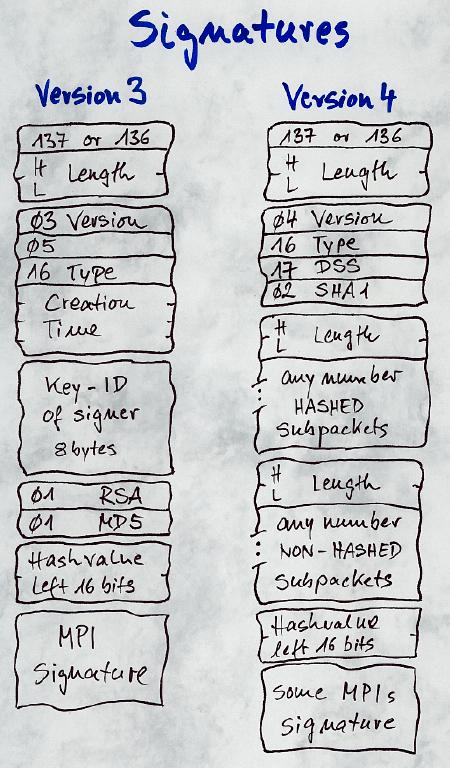 Signatures
Version 3
137 or 136
H
L Length
Ø3 Version
Ø5
16 Type
Creation
Time
Key-ID
of signer
8 bytes
Ø1 RSA
Ø1 MD5
Hashvalue
left 16 bits
MPI
Signature
Version 4
137 or 136
H
L Length
Ø4 Version
16 Type
17 DSS
Ø2 SHA1
H
L Length
any number
HASHED
Subpackets
H
L Length
any number
NON-HASHED
Subpackets
Hashvalue
left 16 bits
some MPIs
signature